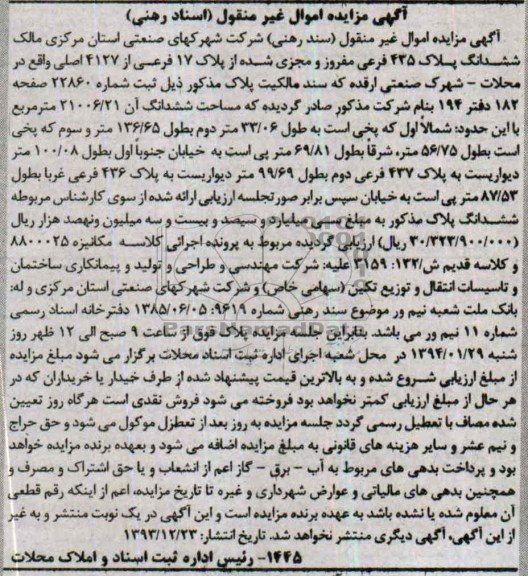 آگهی مزایده اموال غیر منقول (اسناد رهنی)
آگهی مزایده اموال غیر منقول (سند رهنی) شرکت شهرکهای صنعتی استان مرکزی مالک
ششدانگ پلاک ۴۳۵ فرعی مفروز و مجزی شده از پلاک ۱۷ فرعی از ۴۱۲۷ اصلی واقع در
محلات - شهرک صنعتی ارقده که سند مالکیت پلاک مذکور ذیل ثبت شماره ۲۲۸۶۰ صفحه
۱۸۲ دفتر ۱۹۴ بنام شرکت مذکور صادر گردیده که مساحت ششدانگ آن ۲۱۰۰۶/۲۱ مترمربع
با این حدود: شمالاً اول که پخی است به طول ۳۳/۰۶ متر دوم بطول ۱۳۶/۶۵ متر و سوم که پخی
است بطول ۵۶/۷۵ متر، شرقاً بطول ۶۹/۸۱ متر پی است به خیابان جنوباً اول بطول ۱۰۰/۰۸ متر
دیواریست به پلاک ۴۳۷ فرعی دوم بطول ۹۹/۶۹ متر دیواریست به پلاک ۴۳۶ فرعی غربا بطول
۸۷/۵۳ متر پی است به خیابان سپس برابر صورتجلسه ارزیابی ارائه شده از سوی کارشناس مربوطه
ششدانگ پلاک مذکور به مبلغ سی میلیارد و سیصد و بیست و سه میلیون ونهصد هزار ریال
(۳۰/۳۲۳/۹۰۰/۰۰۰ ریال) ارزیابی گردیده مربوط به پرونده اجرائی کلاسه مکانیزه ۸۸۰۰۰۲۵
و کلاسه قدیم ش/۱۳۲: ۲۱۵۹ علیه: شرکت مهندسی و طراحی و تولید و پیمانکاری ساختمان
و تاسیسات انتقال و توزیع تکین (سهامی خاص) و شرکت شهرکهای صنعتی استان مرکزی و له:
بانک ملت شعبه نیم ور موضوع سند رهنی شماره ۹۶۱۹: ۱۳۸۵/۰۶/۰۵ دفترخانه اسناد رسمی
شماره ۱۱ نیم ور می باشد. بنابراین جلسه مزایده پلاک فوق از ساعت ۹ صبح الی ۱۲ ظهر روز
شنبه ۱۳۹۴/۰۱/۲۹ در محل شعبه اجرای اداره ثبت اسناد محلات برگزار می شود مبلغ مزایده
از مبلغ ارزیابی شروع شده و به بالاترین قیمت پیشنهاد شده از طرف خیدار یا خریداران که در
هر حال از مبلغ ارزیابی کمتر نخواهد بود فروخته می شود فروش نقدی است هرگاه روز تعیین
شده مصاف با تعطیل رسمی گردد جلسه مزایده به روز بعد از تعطزل موکول می شود و حق حراج
و نیم عشر و سایر هزینه های قانونی به مبلغ مزایده اضافه می شود و بعهده برنده مزایده خواهد
بود و پرداخت بدهی های مربوط به آب - برق - گاز اعم از انشعاب و یا حق اشتراک و مصرف و
همچنین بدهی های مالیاتی و عوارض شهرداری و غیره تا تاریخ مزایده، اعم از اینکه رقم قطعی
آن معلوم شده یا نشده باشد به عهده برنده مزایده است و این آگهی در یک نوبت منتشر و به غیر
از این آگهی، آگهی دیگری منتشر نخواهد شد. تاریخ انتشار: ۱۳۹۳/۱۲/۲۳
۱۴۴۵- رئیس اداره ثبت اسناد و املاک محلات